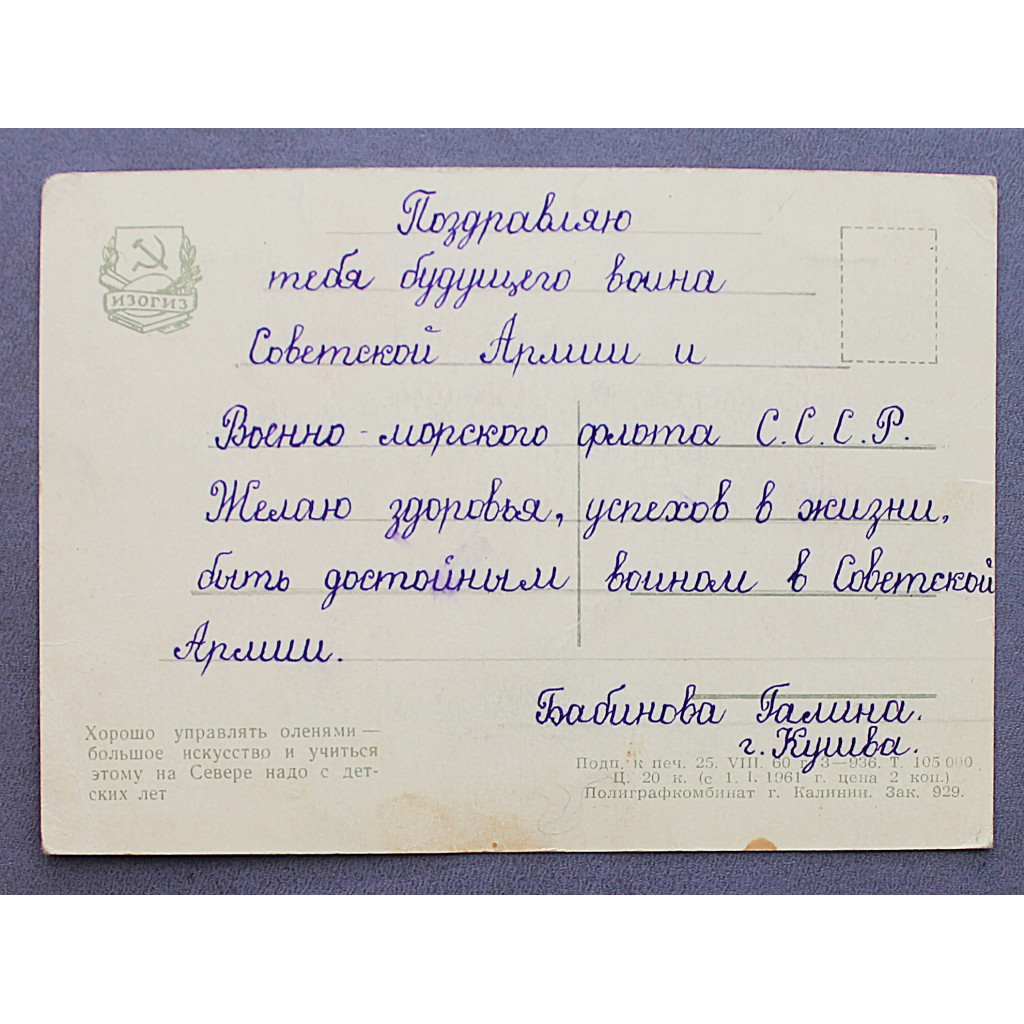 Поздравляю
тебя будущего воина
Советской Армии и
Военно-морского флота С.С.С.Р.
Желаю здоровья, успехов в жизни,
быть достойным воином в Советской
Армии.
Бабинова Галина.
г. Кушва.
ИЗОГИЗ
Хорошо управлять оленями —
большое искусство и учиться
этому на Севере надо с дет-
ских лет
Подп. к печ. 25. VIII. 60 г. З—936. Т. 105 000
Ц. 20 к. (с 1. I. 1961 г. цена 2 коп.)
Полиграфкомбинат г. Калинин. Зак. 929.